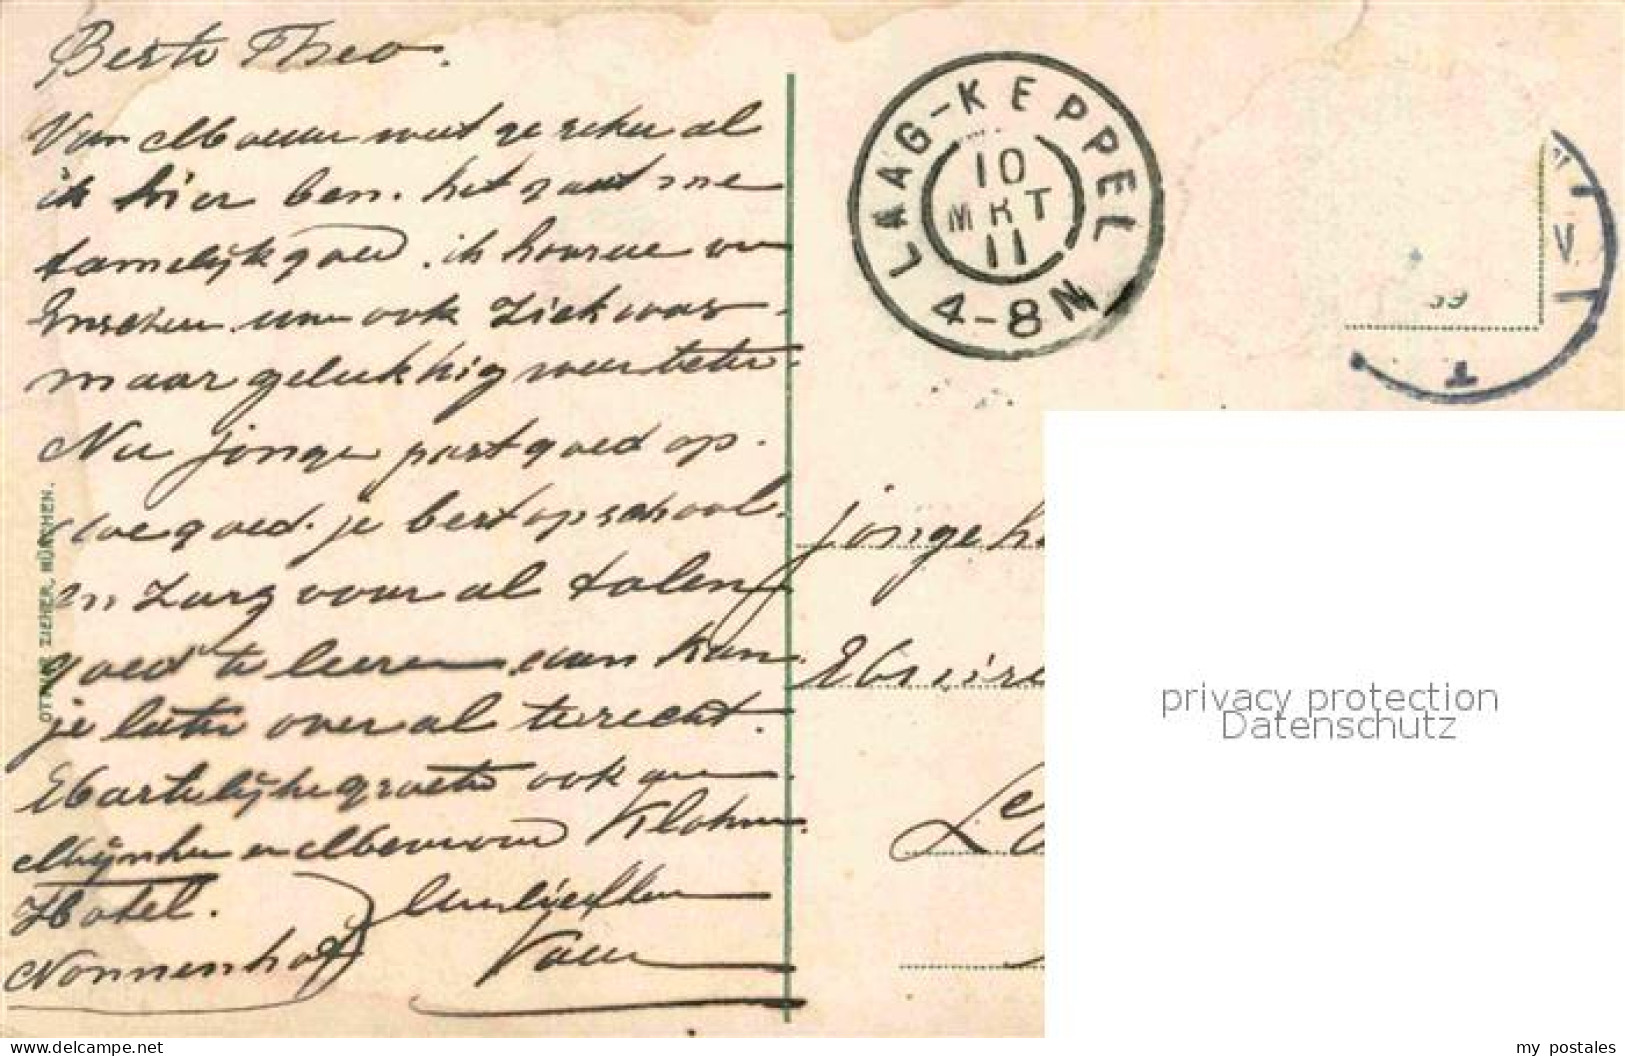 Beste Theo.
Van Moeder weet ge zeker al
ik hier ben. het gaat me
tamelijk goed. ik
ook ziek was.
maar gelukkig weer beter.
Nu jonge past goed op.
doe goed je best op school.
en zorg vooral talen
goed te leeren dan kan
je later overal terecht.
Hartelijke groeten ook aan
Mijnheer en Mevrouw
Hotel.
Nonnenhof
Uwliefhen
Vader
OTTMAR ZIEHER, MÜNCHEN.
LAAG-KEPPEL
10
MRT
11
4-8N
V
39
jonge
privacy protection
Datenschutz
delcampe.net
my_postales